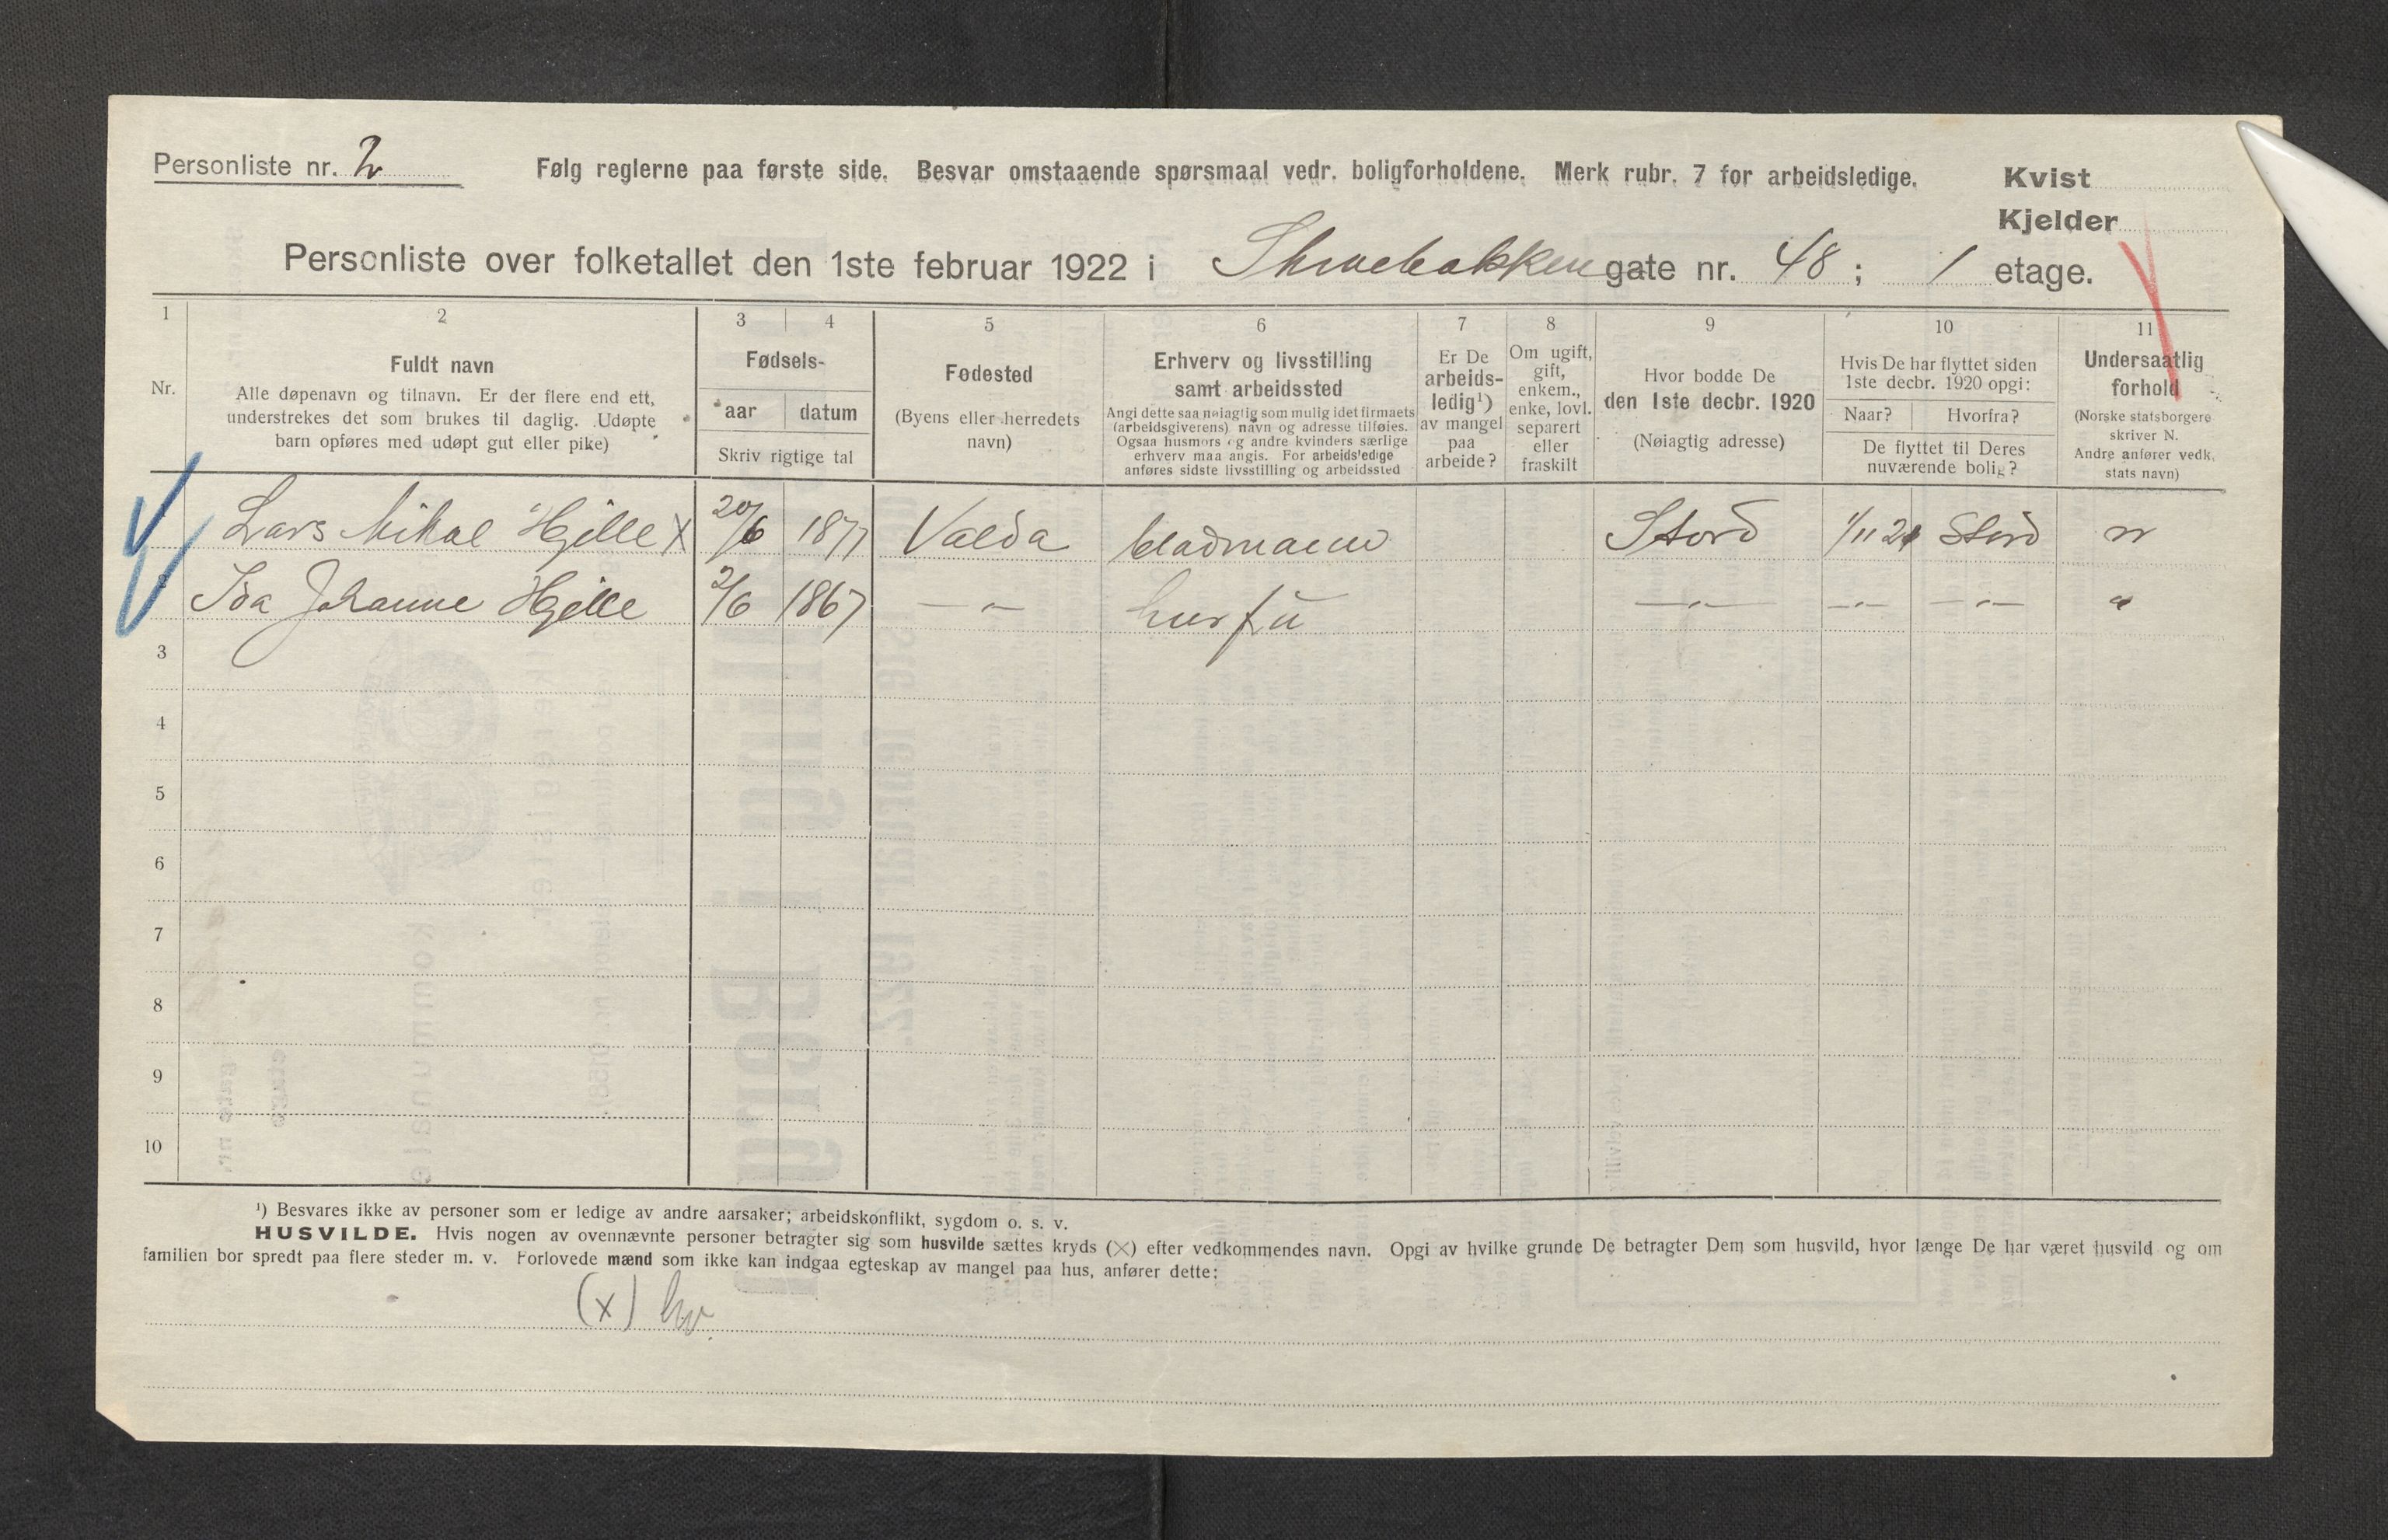 Personliste nr. 2
Følg reglerne paa første side. Besvar omstaaende spørsmaal vedr. boligforholdene. Merk rubr. 7 for arbeidsledige.
Kvist
Kjelder
Personliste over folketallet den 1ste februar 1922 i Skivebakken gate nr. 48; 1 etage.
1 2 3 4 5 6 7 8 9 10 11
Nr.
Fuldt navn
Alle døpenavn og tilnavn. Er der flere end ett,
understrekes det som brukes til daglig. Udøpte
barn opføres med udøpt gut eller pike)
Fødsels-
aar datum
Skriv rigtige tal
Fødested
(Byens eller herredets
navn)
Erhverv og livsstilling
samt arbeidssted
Angi dette saa nøiagtig som mulig idet firmaets
(arbeidsgiverens) navn og adresse tilføies.
Ogsaa husmors og andre kvinders særlige
erhverv maa angis. For arbeidsledige
anføres sidste livsstilling og arbeidssted
Er De
arbeids-
ledig¹)
av mangel
paa
arbeide?
Om ugift,
gift,
enkem.,
enke, lovl.
separert
eller
fraskilt
Hvor bodde De
den 1ste decbr. 1920
(Nøiagtig adresse)
Hvis De har flyttet siden
1ste decbr. 1920 opgi:
Naar? Hvorfra?
De flyttet til Deres
nuværende bolig?
Undersaatlig
forhold
(Norske statsborgere
skriver N.
Andre anfører vedk.
stats navn)
Lars Mikal Hjelle X 20/6 1877 Valda Stord 1/11 21 Stord n
Ida Johanne Hjelle 2/6 1867 — " — husfru — " — — " — — " — "
3
4
5
6
7
8
9
10
¹) Besvares ikke av personer som er ledige av andre aarsaker; arbeidskonflikt, sygdom o. s. v.
HUSVILDE. Hvis nogen av ovennævnte personer betragter sig som husvilde sættes kryds (X) efter vedkommendes navn. Opgi av hvilke grunde De betragter Dem som husvild, hvor længe De har været husvild og om
familien bor spredt paa flere steder m. v. Forlovede mænd som ikke kan indgaa egteskap av mangel paa hus, anfører dette:
(x) hv.